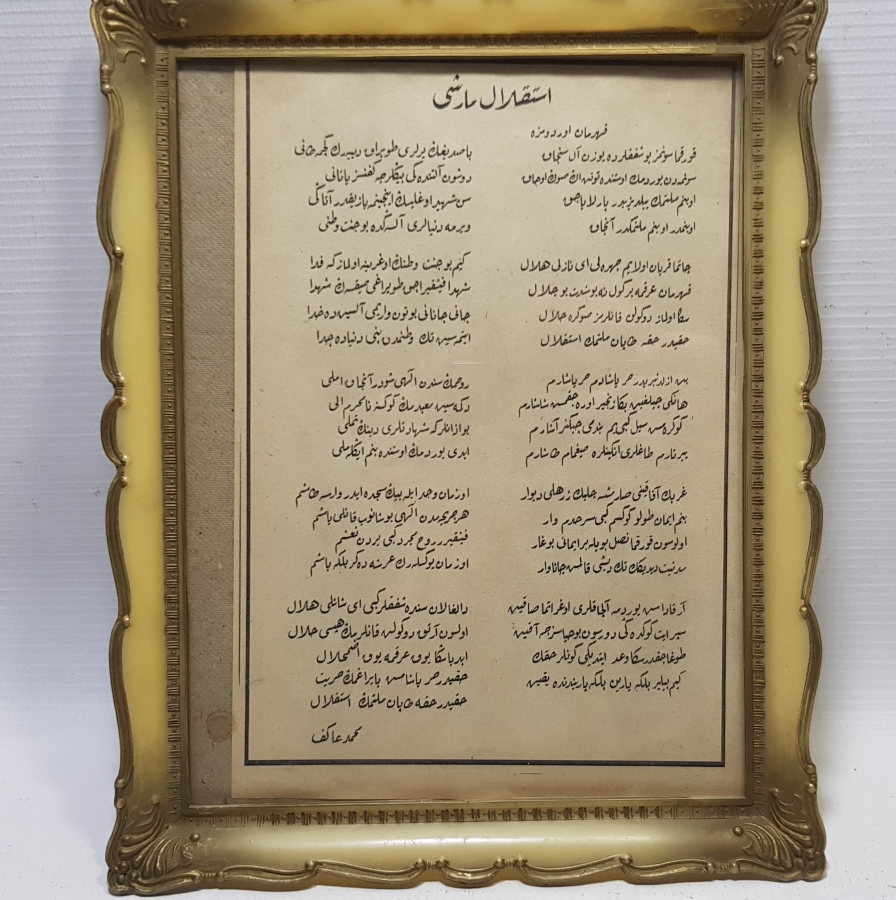 استقلال مارشی
قهرمان اوردومزه
قورقما سونمز بو شفقلرده یوزن آل سنجاق
سونمدن یوردمك اوستنده توتن اڭ صوڭ اوجاق
او بنم ملتمك ییلدیزیدر پارلایاجق
او بنمدر او بنم ملتمكدر آنجاق
چاتما قربان اولایم چهره‌ڭی ای نازلی هلال
قهرمان عرقمه بر كول نه بو شدت بو جلال
سڭا اولماز دوكولن قانلرمز صوڭره حلال
حقیدر حقه طاپان ملتمك استقلال
بن ازلدنبریدر حر یاشادم حر یاشارم
هانكی چیلغین بڭا زنجیر اوره‌جقمش شاشارم
كوكره‌مش سیل كبی‌یم بندمی چیكنر آشارم
ییرتارم طاغلری انكینلره صیغمام طاشارم
غربك آفاقنی صارمشسه چلیك زرهلی دیوار
بنم ایمان طولو كوكسم كبی سرحدم وار
اولوسون قورقما نصل بویله بر ایمانی بوغار
مدنیت دیدیكك تك دیشی قالمش جاناوار
آرقاداش یوردیمه آلچاقلری اوغراتما صاقین
سپر ایت كوكده‌ڭی دورسون بو حیاسزجه آقین
طوغاجقدر سڭا وعد ایتدیكی كونلر حقك
كیم بیلیر بلكه یارین بلكه یاریندنده یقین
باصدیغك یرلری طوپراق دییه‌رك كچمه طانی
دوشون آلتنده‌كی بیكلرجه كفنسز یاتانی
سن شهید اوغلیسك اینجیتمه یازیقدر آتاڭی
ویرمه دنیالری آلسه‌ڭده بو جنت وطنی
كیم بو جنت وطنك اوغرینه اولماز كه فدا
شهدا فیشقیراجق طوپراغی صیقسه‌ڭ شهدا
جانی جانانی بوتون واریمی آلسین ده خدا
ایتمسین تك وطنمدن بنی دنیاده جدا
روحمك سندن الهی شودر آنجاق املی
دكمه‌سین معبدمك كوكسنه نامحرم الی
بو اذانلر كه شهادتلری دینك تملی
ابدی یوردمك اوستنده بنم ایكله‌ملی
او زمان وجد ایله بیك سجده ایدر وارسه طاشم
هر جریحه‌مدن الهی بوشانوب قانلی یاشم
فیشقیرر روح مجرد كبی یردن نعشم
او زمان یوكسله‌رك عرشه دكر بلكه باشم
دالغالان سنده شفقلر كبی ای شانلی هلال
اولسون آرتق دوكولن قانلرمك هپسی حلال
ابدیا سڭا یوق عرقمه یوق اضمحلال
حقیدر حر یاشامش بایراغمك حریت
حقیدر حقه طاپان ملتمك استقلال
محمد عاكف